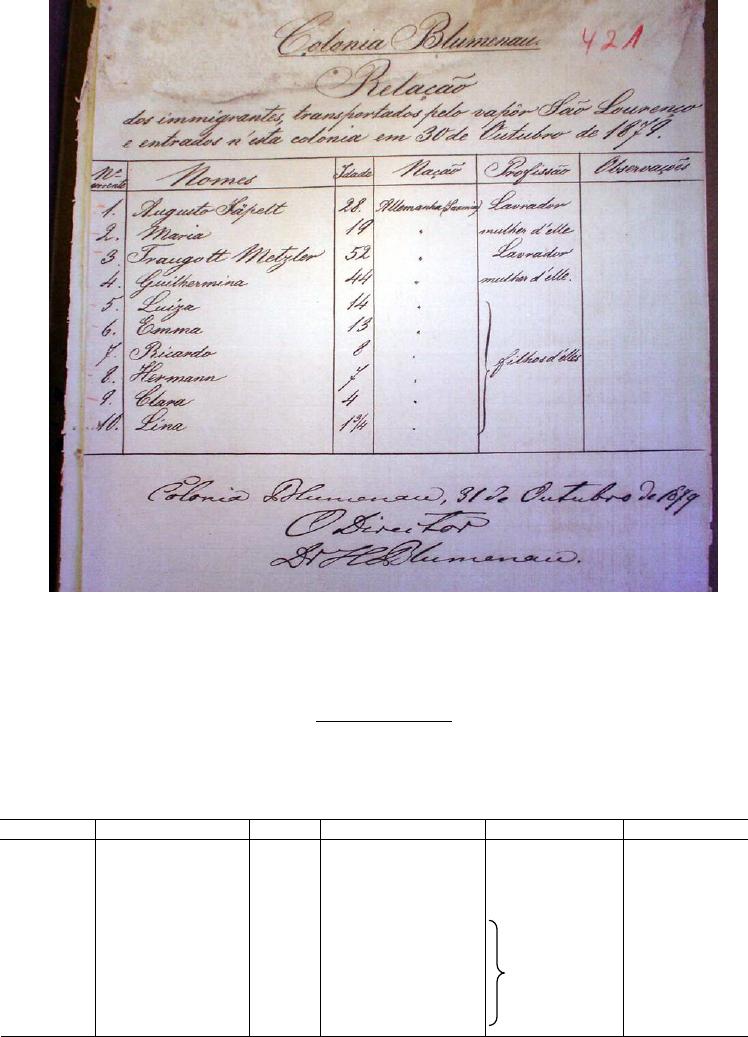 Colonia Blumenau.
42A
Relação
dos immigrantes, transportados pelo vapôr São Lourenço
e entrados n'esta colonia em 30 de Outubro de 1879.
Nº Nomes Idade Nação Profissão Observações
1. Augusto Jäpelt 28. Allemanha (Saxonia) Lavrador
2. Maria 19 " mulher d'elle
3. Traugott Metzler 52 " Lavrador
4. Guilhermina 44 " mulher d'elle.
5. Luiza 14 "
6. Emma 13 "
7. Ricardo 8 " filhos d'elles
8. Hermann 7 "
9. Clara 4 "
10. Lina 1 3/4 "
Colonia Blumenau, 31 de Outubro de 1879
O Director
Dr H Blumenau.